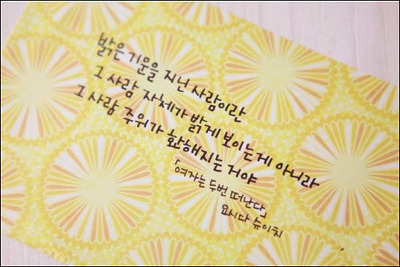 밝은 기운을 지닌 사람이란
그 사람 자체가 밝게 보이는게 아니라
그 사람 주위가 환해지는 거야
「여자는 두번 떠난다」
요시다 슈이치